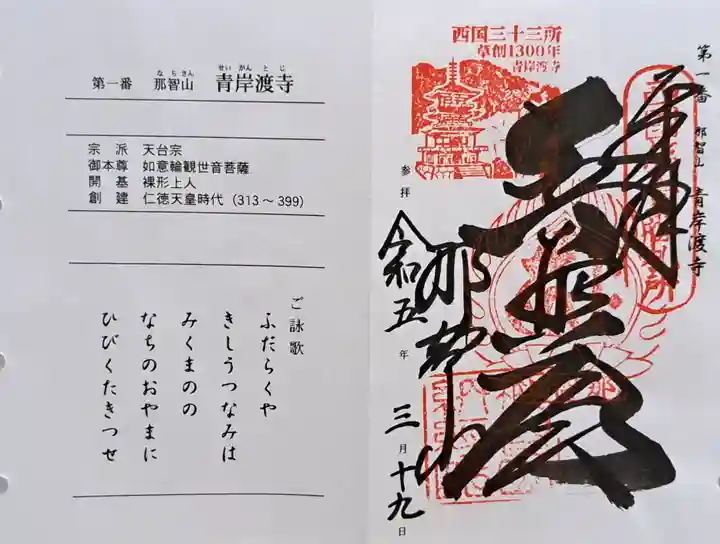 第一番 那智山 青岸渡寺
なちさん せいがんとじ
宗派 天台宗
御本尊 如意輪観世音菩薩
開基 裸形上人
創建 仁徳天皇時代（313～399）
ご詠歌
ふだらくや
きしうつなみは
みくまのの
なちのおやまに
ひびくたきつせ
第一番 那智山 青岸渡寺
奉拝
西国三十三所
草創1300年
青岸渡寺
参拝
令和五年 三月十九日
那智山